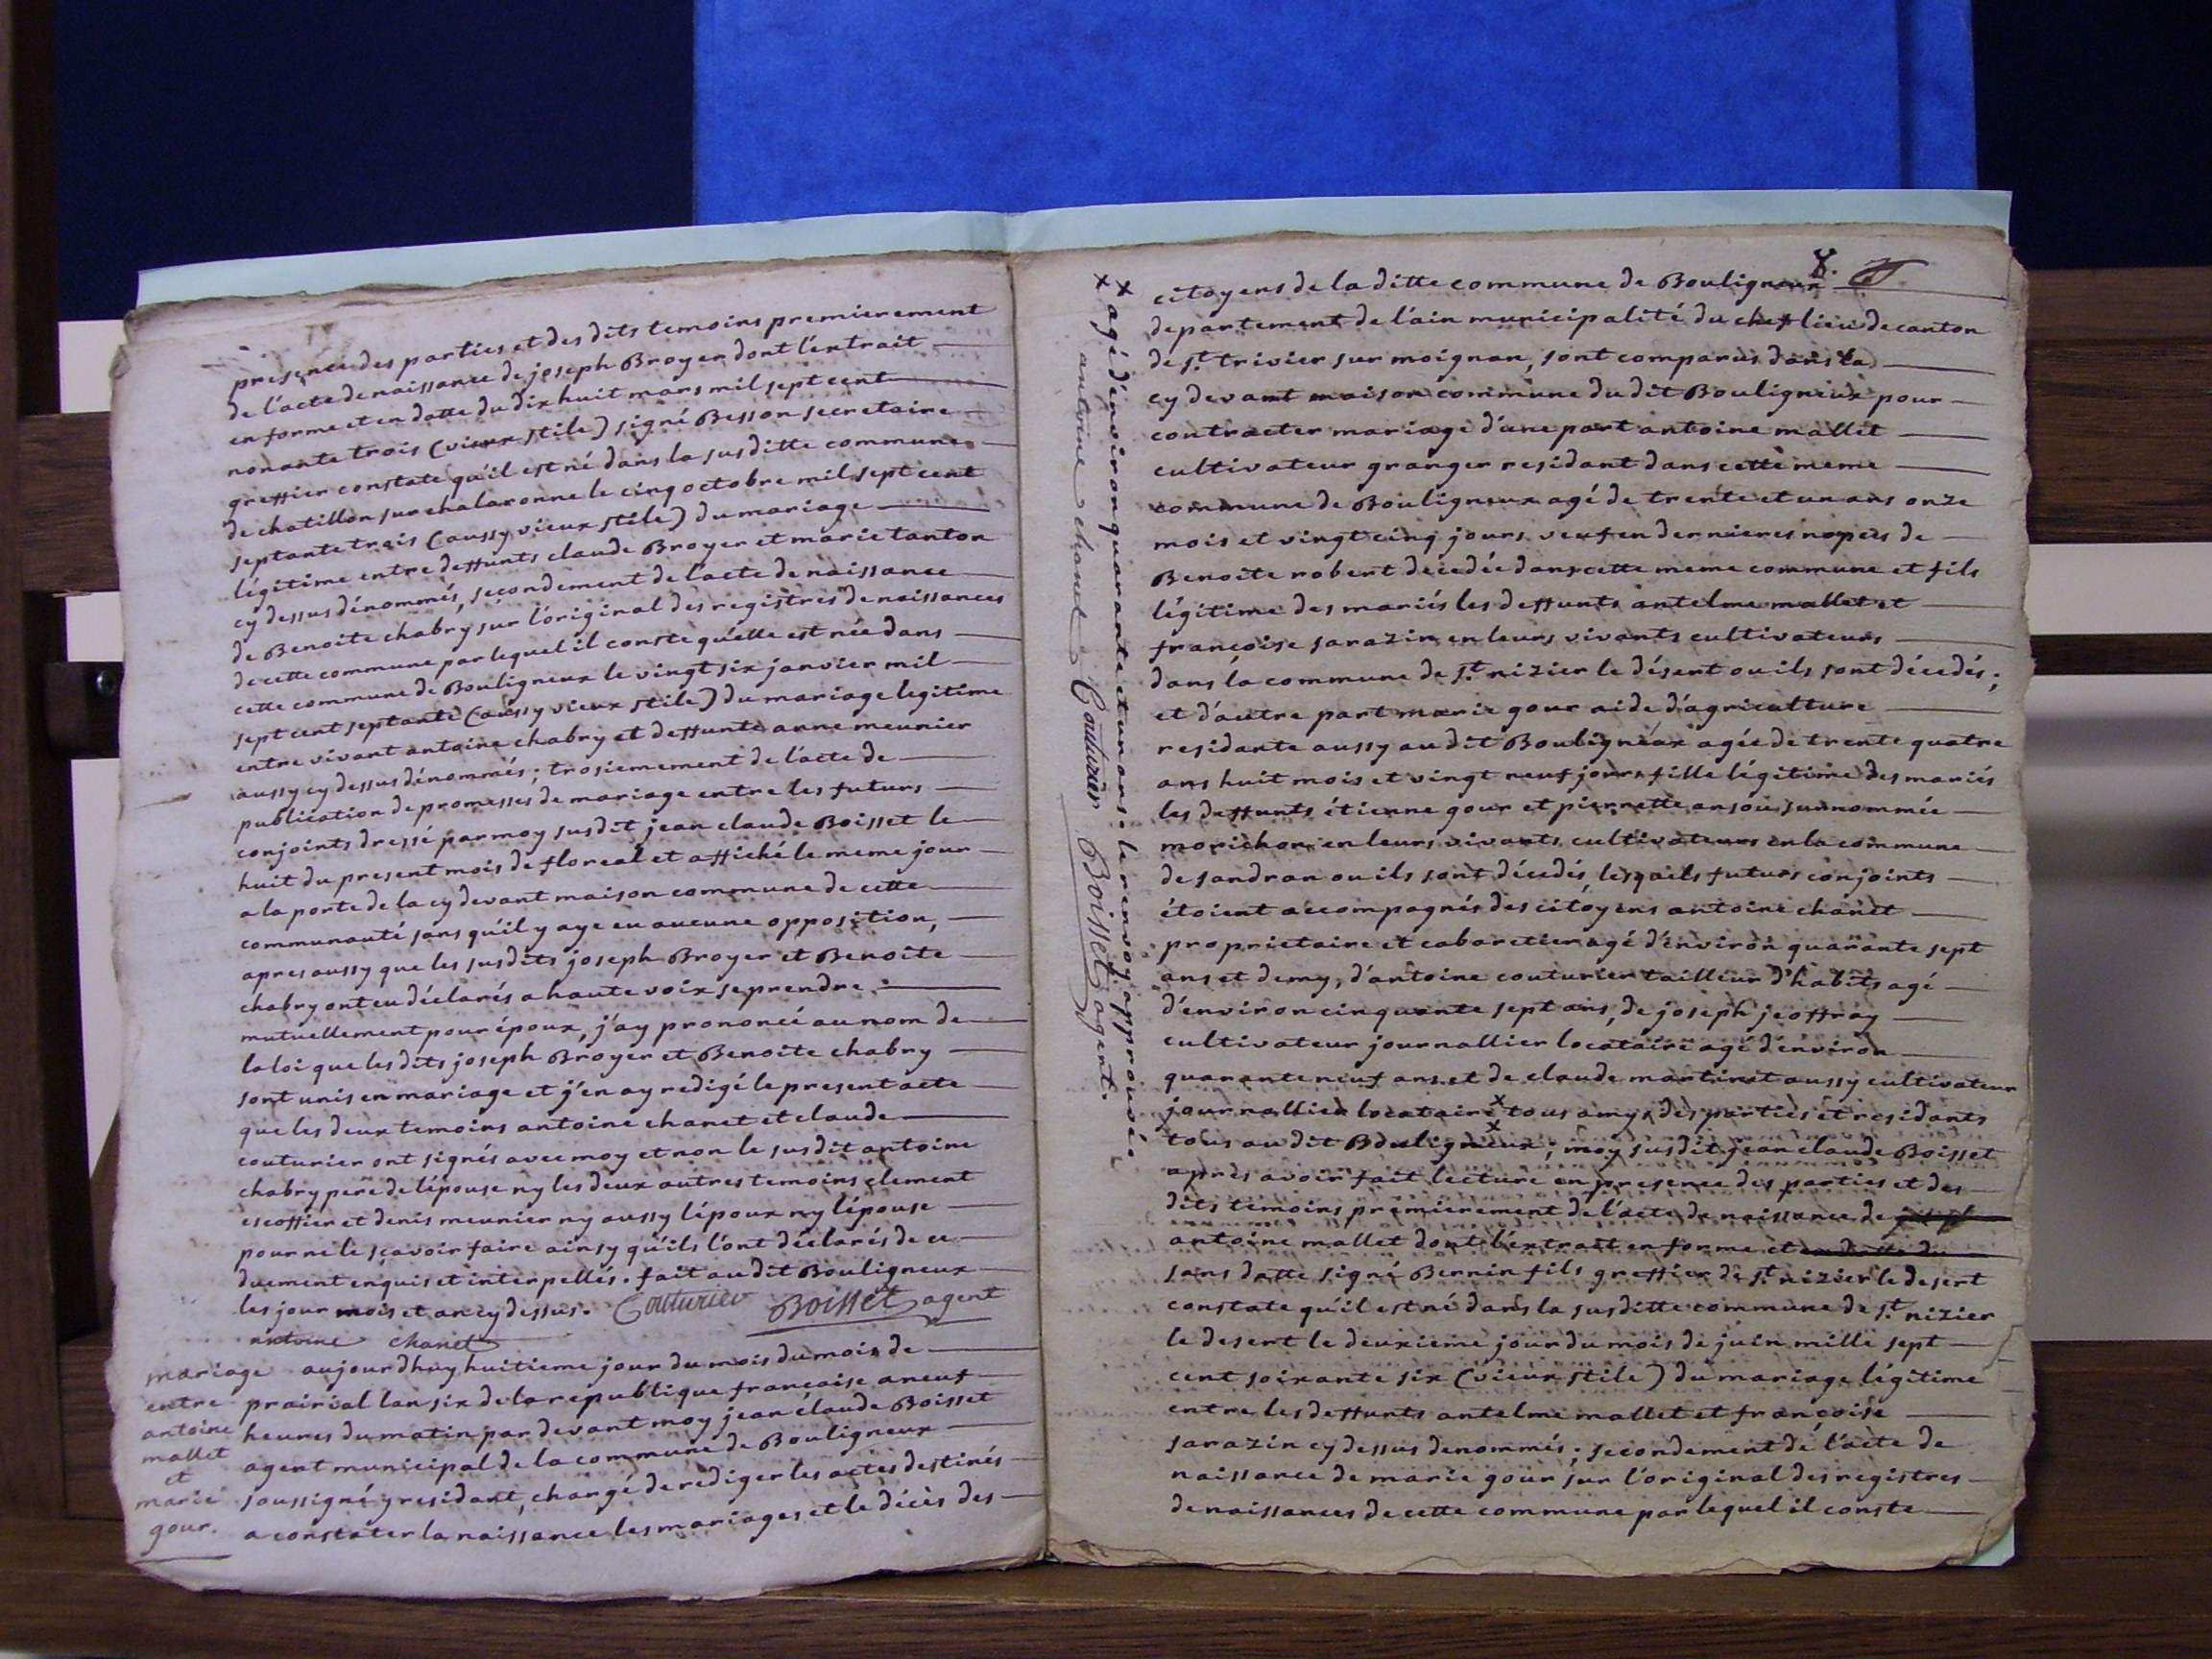 presence des parties et des dits temoins premierement
de l'acte de naissance de joseph Broyer dont l'extrait
en forme et en datte du dix huit mars mil sept cent
nonante trois (vieux stile) signé Besson secretaire
greffier constate qu'il est né dans la susditte commune
de chatillon sur chalaronne le cinq octobre mil sept cent
septante trois (aussy vieux stile) du mariage
légitime entre deffunts claude Broyer et marie tanton
cy dessus dénommés, secondement de l'acte de naissance
de Benoite chabry sur l'original des registres de naissances
de cette commune par lequel il conste qu'elle est née dans
cette commune de Bouligneux le vingt six janvier mil
sept cent septante (aussy vieux stile) du mariage legitime
entre vivant antoine chabry et deffunte anne meunier
aussy cy dessus dénommés; trosiemement de l'acte de
publication de promesses de mariage entre les futurs
conjoints dressé par moy susdit jean claude Boisset le
huit du present mois de floreal et affiché le meme jour
a la porte de la cy devant maison commune de cette
communauté sans qu'il y aye eu aucune opposition,
apres aussy que les susdits joseph Broyer et Benoite
chabry ont eu déclarés a haute voix se prendre
mutuellement pour époux, j'ay prononcé au nom de
la loi que les dits joseph Broyer et Benoite chabry
sont unis en mariage et j'en ay redigé le present acte
que les deux temoins antoine chanet et claude
couturier ont signés avec moy et non le susdit antoine
chabry pere de l'épouse ny les deux autres temoins clement
escoffier et denis meunier ny aussy l'époux ny l'épouse
pour ne le sçavoir faire ainsy qu'ils l'ont déclarés de ce
duement enquis et interpellés. fait au dit Bouligneux
les jour mois et an cy dessus. Couturier Boisset agent
antoine chanet
mariage
entre
antoine
mallet
et
marie
gour.
aujourdhuy huitieme jour du mois du mois de
prairial lan six de la republique francaise a neuf
heures du matin par devant moy jean claude Boisset
agent municipal de la commune de Bouligneux
soussigné y residant, chargé de rediger les actes destinés
a constater la naissance les mariages et le décès des
8.
citoyens de la ditte commune de Bouligneux
departement de l'ain municipalité du chef lieu de canton
de st. trivier sur moignan, sont comparus dans la
cy devant maison commune du dit Bouligneux pour
contracter mariage d'une part antoine mallet
cultivateur granger residant dans cette meme
commune de Bouligneux agé de trente et un ans onze
mois et vingt cinq jours veuf en dernieres nopces de
Benoite robert décedée dans cette meme commune et fils
légitime des mariés les deffunts antelme mallet et
françoise sarazin en leurs vivants cultivateurs
dans la commune de st. nizier le désert ou ils sont décedés;
et d'autre part marie gour aide d'agriculture
residante aussy au dit Bouligneux agée de trente quatre
ans huit mois et vingt neuf jours fille légitime des mariés
les deffunts étienne gour et pierrette ansou surnommée
morichon en leurs vivants cultivateurs en la commune
de sandran ou ils sont décedés, lesquels futurs conjoints
étoient accompagnés des citoyens antoine chanet
proprietaire et cabaretier agé d'environ quarante sept
ans et demy, d'antoine couturier tailleur d'habits agé
d'environ cinquante sept ans, de joseph jeoffray
cultivateur journallier locataire agé d'environ
quarante neuf ans et de claude martinet aussy cultivateur
journallier locataire x tous amys des parties et residants
tous au dit Bouligneux; x moy susdit jean claude Boisset
après avoir fait lecture en presence des parties et des
dits temoins premierement de l'acte de naissance de
antoine mallet dont l'extrait en forme et
sans datte signé Bernin fils greffier de st. nizier le desert
constate qu'il est né dans la susditte commune de st. nizier
le desert le deuxieme jour du mois de juin mille sept
cent soixante six (vieux stile) du mariage légitime
entre les deffunts antelme mallet et françoise
sarazin cy dessus denommés; secondement de l'acte de
naissance de marie gour sur l'original des registres
de naissances de cette commune par lequel il conste
x x agé d'environ quarante et un ans. le renvoy approuvé
antoine chanet Couturier Boisset agent.